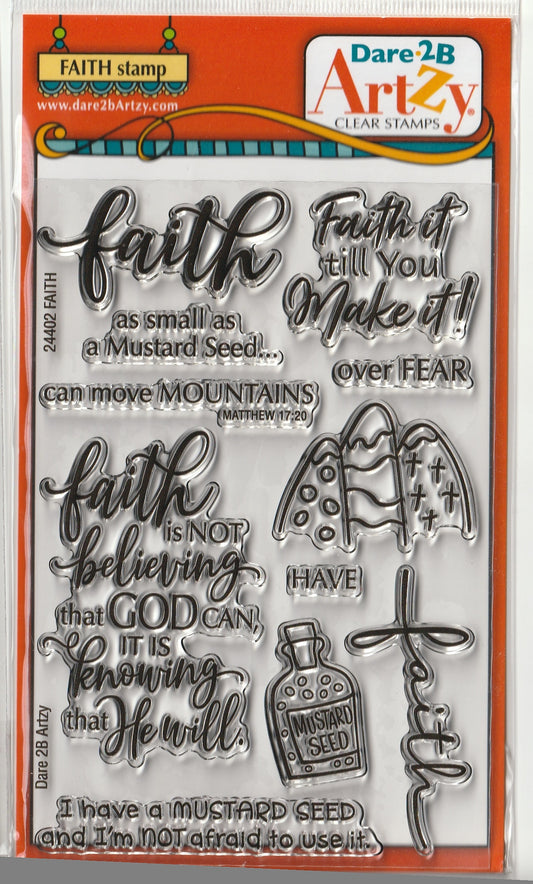 FAITH stamp
www.dare2bArtzy.com
Dare·2B
ArtZy®
CLEAR STAMPS
24402 FAITH
faith
as small as
a Mustard Seed...
can move MOUNTAINS
MATTHEW 17:20
Faith it
till You
Make it!
over FEAR
faith
is NOT
believing
that GOD CAN,
IT IS
knowing
that He will.
HAVE
MUSTARD
SEED
faith
Dare 2B Artzy
I have a MUSTARD SEED
and I'm NOT afraid to use it.